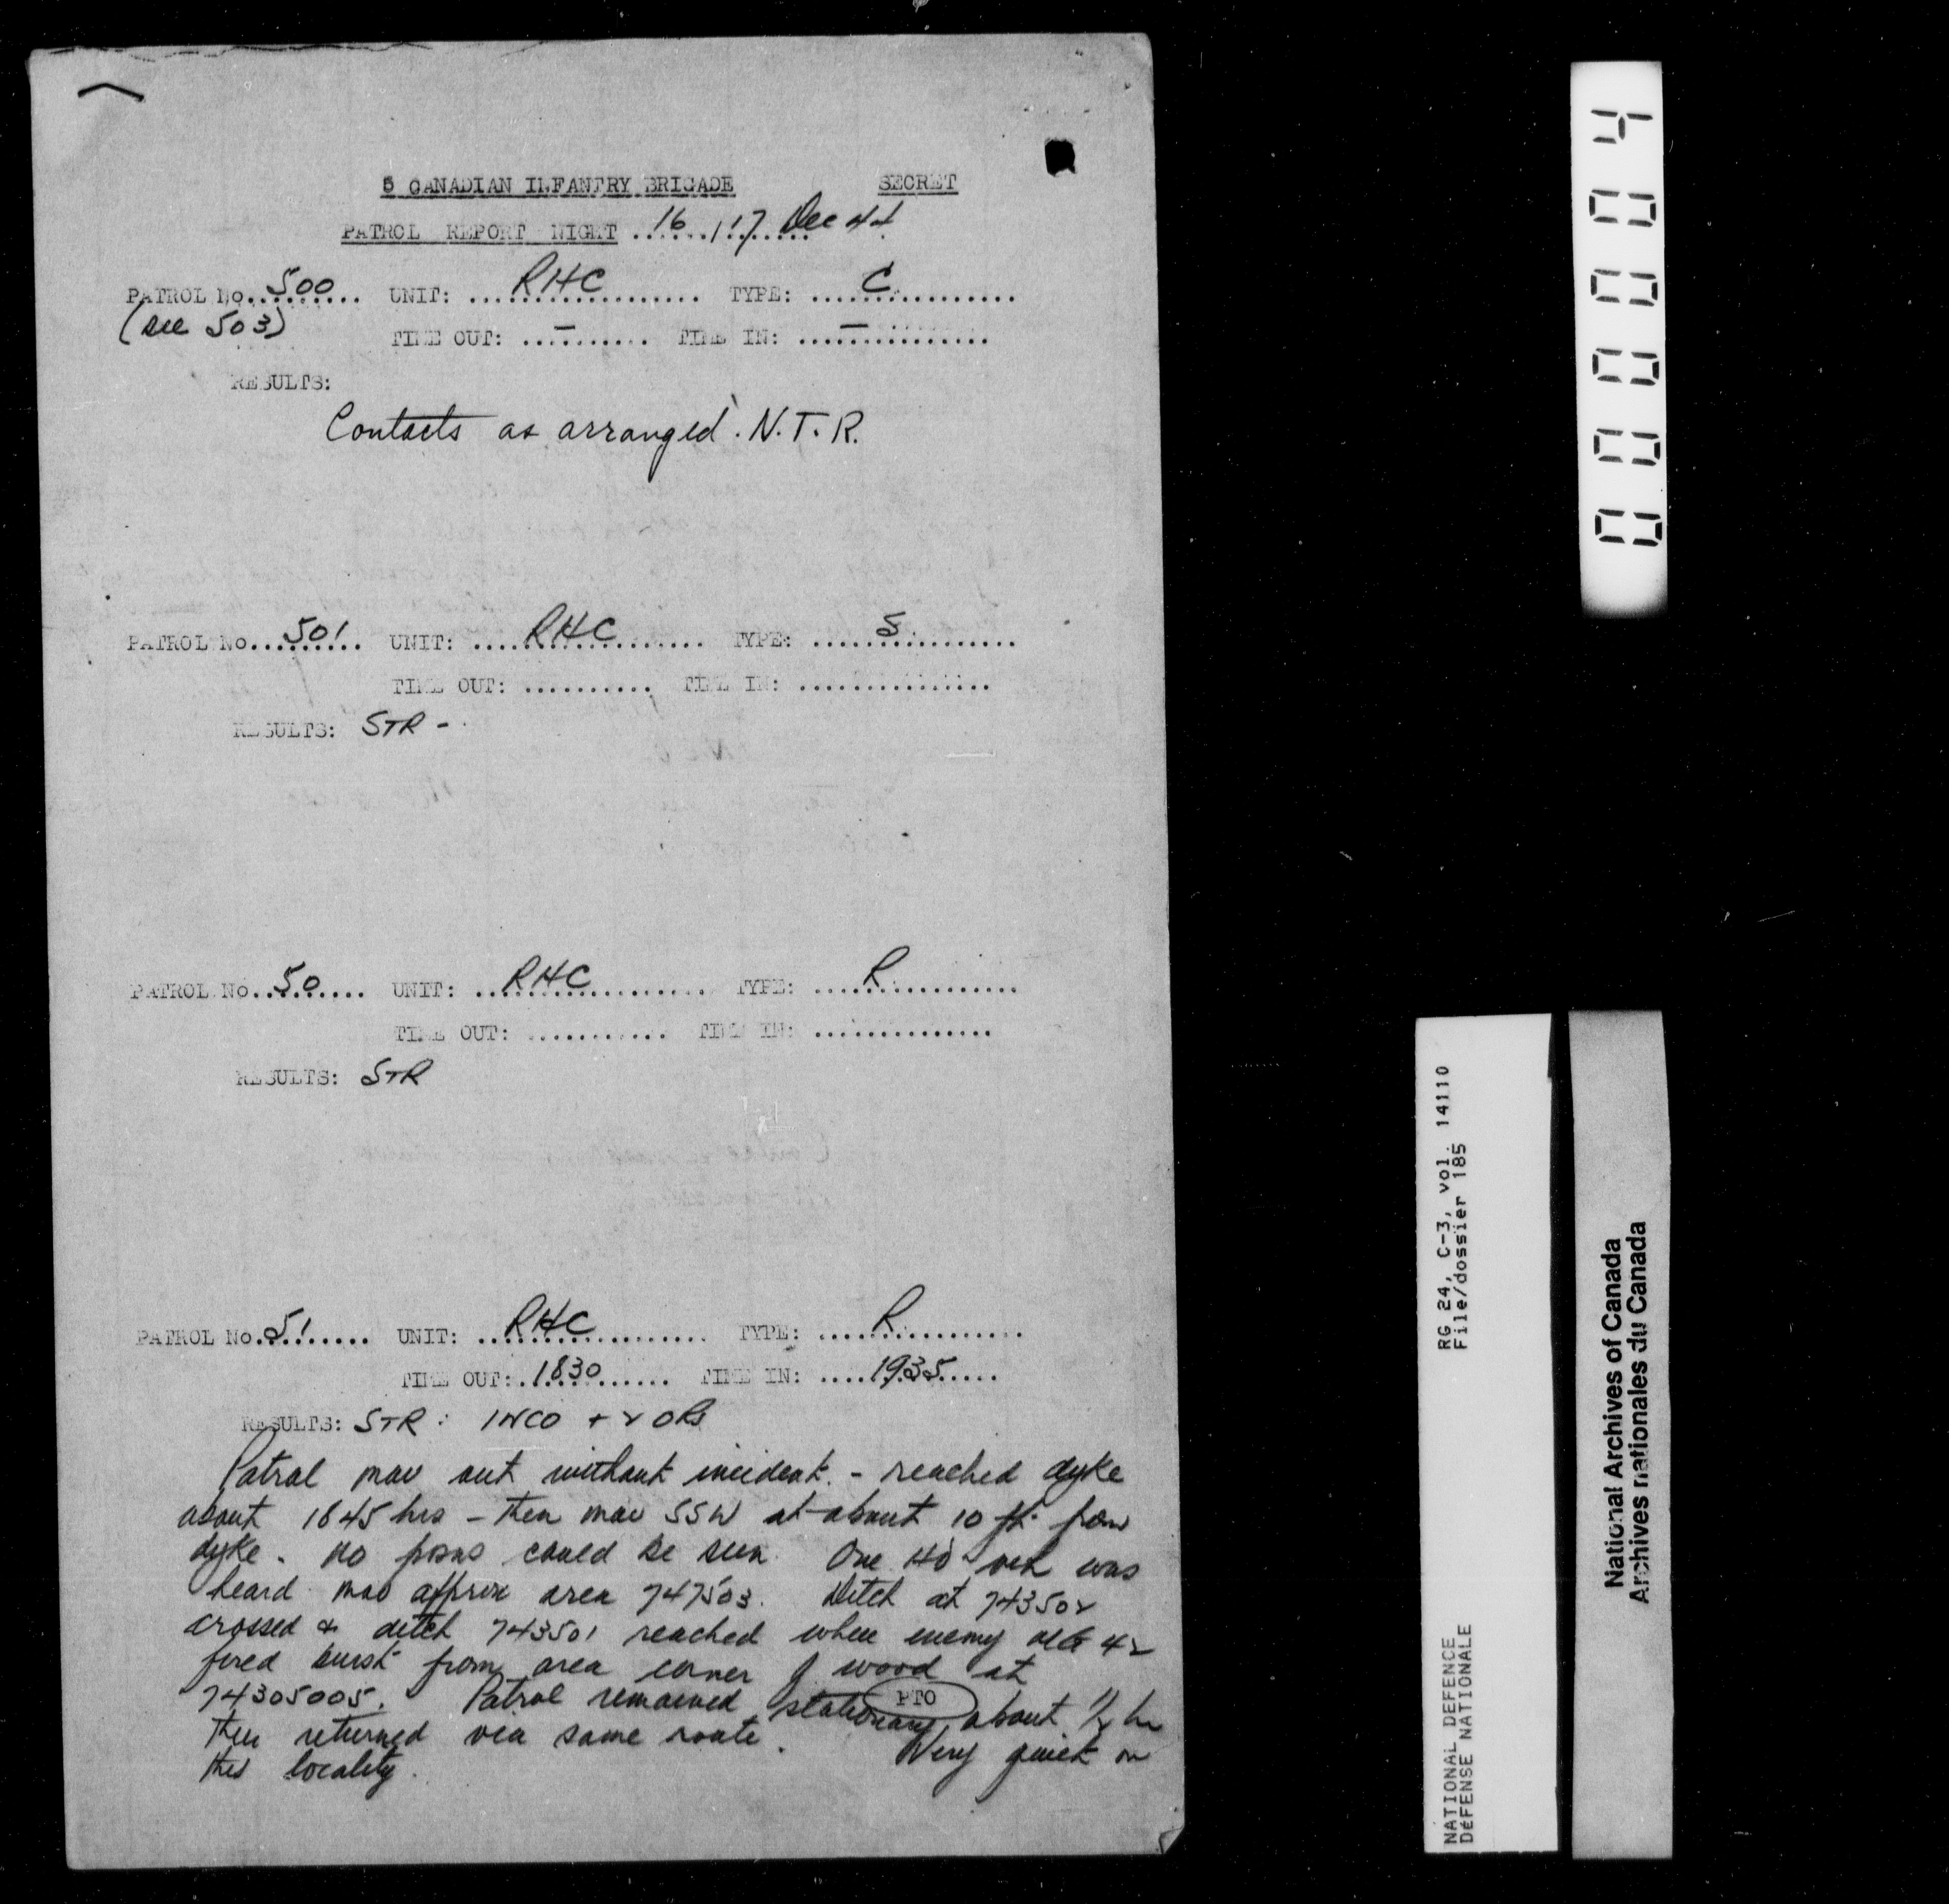 5 CANADIAN INFANTRY BRIGADE SECRET
PATROL REPORT NIGHT 16/17 Dec 44
PATROL No. 500 UNIT: RHC TYPE: C
(see 503) TIME OUT: — TIME IN: —
RESULTS:
Contacts as arranged. N.T.R.
PATROL No. 501 UNIT: RHC TYPE: S
TIME OUT: .......... TIME IN: ...............
RESULTS: STR -
PATROL No. 50 UNIT: RHC TYPE: R
TIME OUT: ........... TIME IN: ..............
RESULTS: STR
PATROL No. 51 UNIT: RHC TYPE: R
TIME OUT: 1830 TIME IN: 1935
RESULTS: STR: 1 NCO + 2 ORs
Patrol mov out without incident. - reached dyke
about 1845 hrs - then mov SSW at about 10 ft. from
dyke. No posns could be seen. One HD veh was
heard mov approx area 747503. Ditch at 743502
crossed & ditch 743501 reached where enemy MG 42
fired burst from area corner of wood at
74305005. Patrol remained stationary about ½ hr
then returned via same route. Very quiet in
this locality.
PTO
000004
RG 24, C-3, vol. 14110
File/dossier 185
NATIONAL DEFENCE
DÉFENSE NATIONALE
National Archives of Canada
Archives nationales du Canada